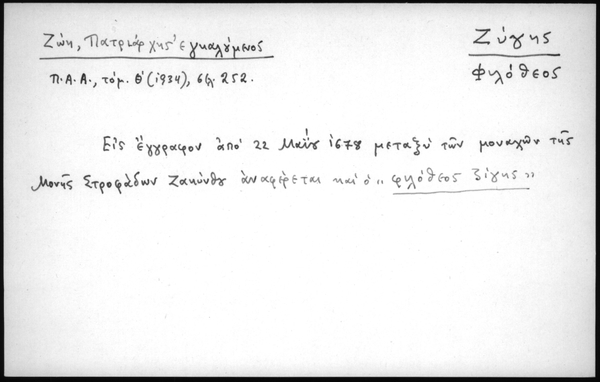 Ζώη, Πατριάρχης ἐγκαλούμενος
Ζύγης
Φιλόθεος
Π.Α.Α., τόμ. Θ' (1934), σελ. 252.
Εἰς ἔγγραφον ἀπό 22 Μαΐου 1678 μεταξύ τῶν μοναχῶν τῆς
Μονῆς Στροφάδων Ζακύνθου ἀναφέρεται καί ὁ „ φιλόθεος ζίγης "